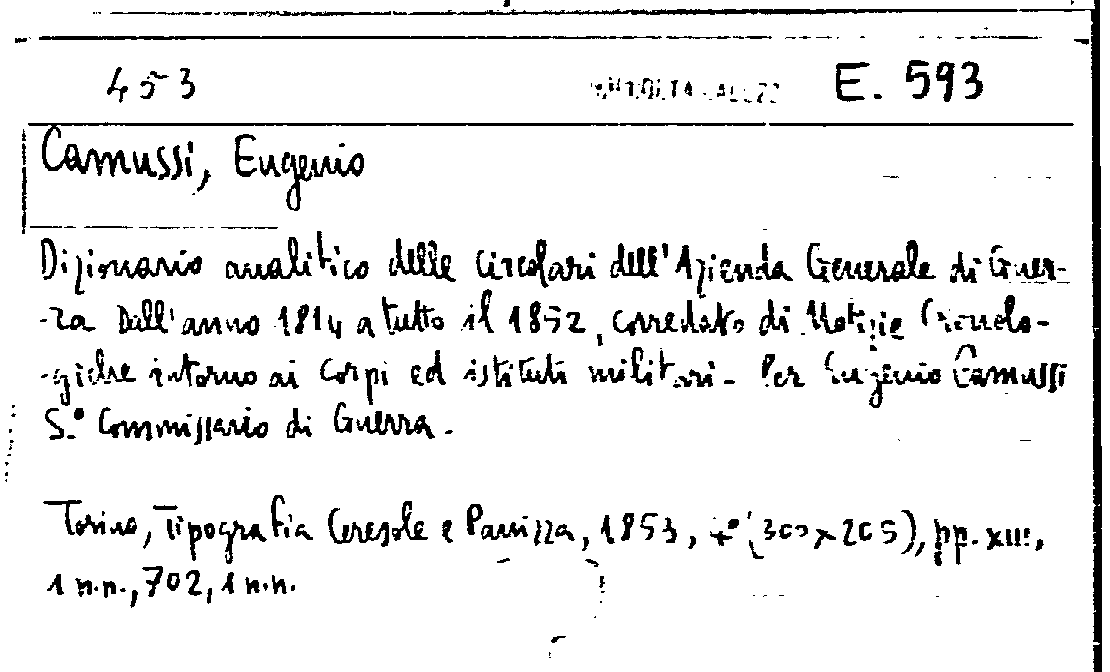 453 E. 593
Camussi, Eugenio
Dizionario analitico delle circolari dell'Azienda Generale di Guer-
-ra Dall'anno 1814 a tutto il 1852, corredato di Notizie Cronolo-
-giche intorno ai Corpi ed istituti militari - Per Eugenio Camussi
S.° Commissario di Guerra.
Torino, Tipografia Ceresole e Panizza, 1853, 4° (305 x 205), pp. XIII,
1 n.n., 702, 1 n.n.